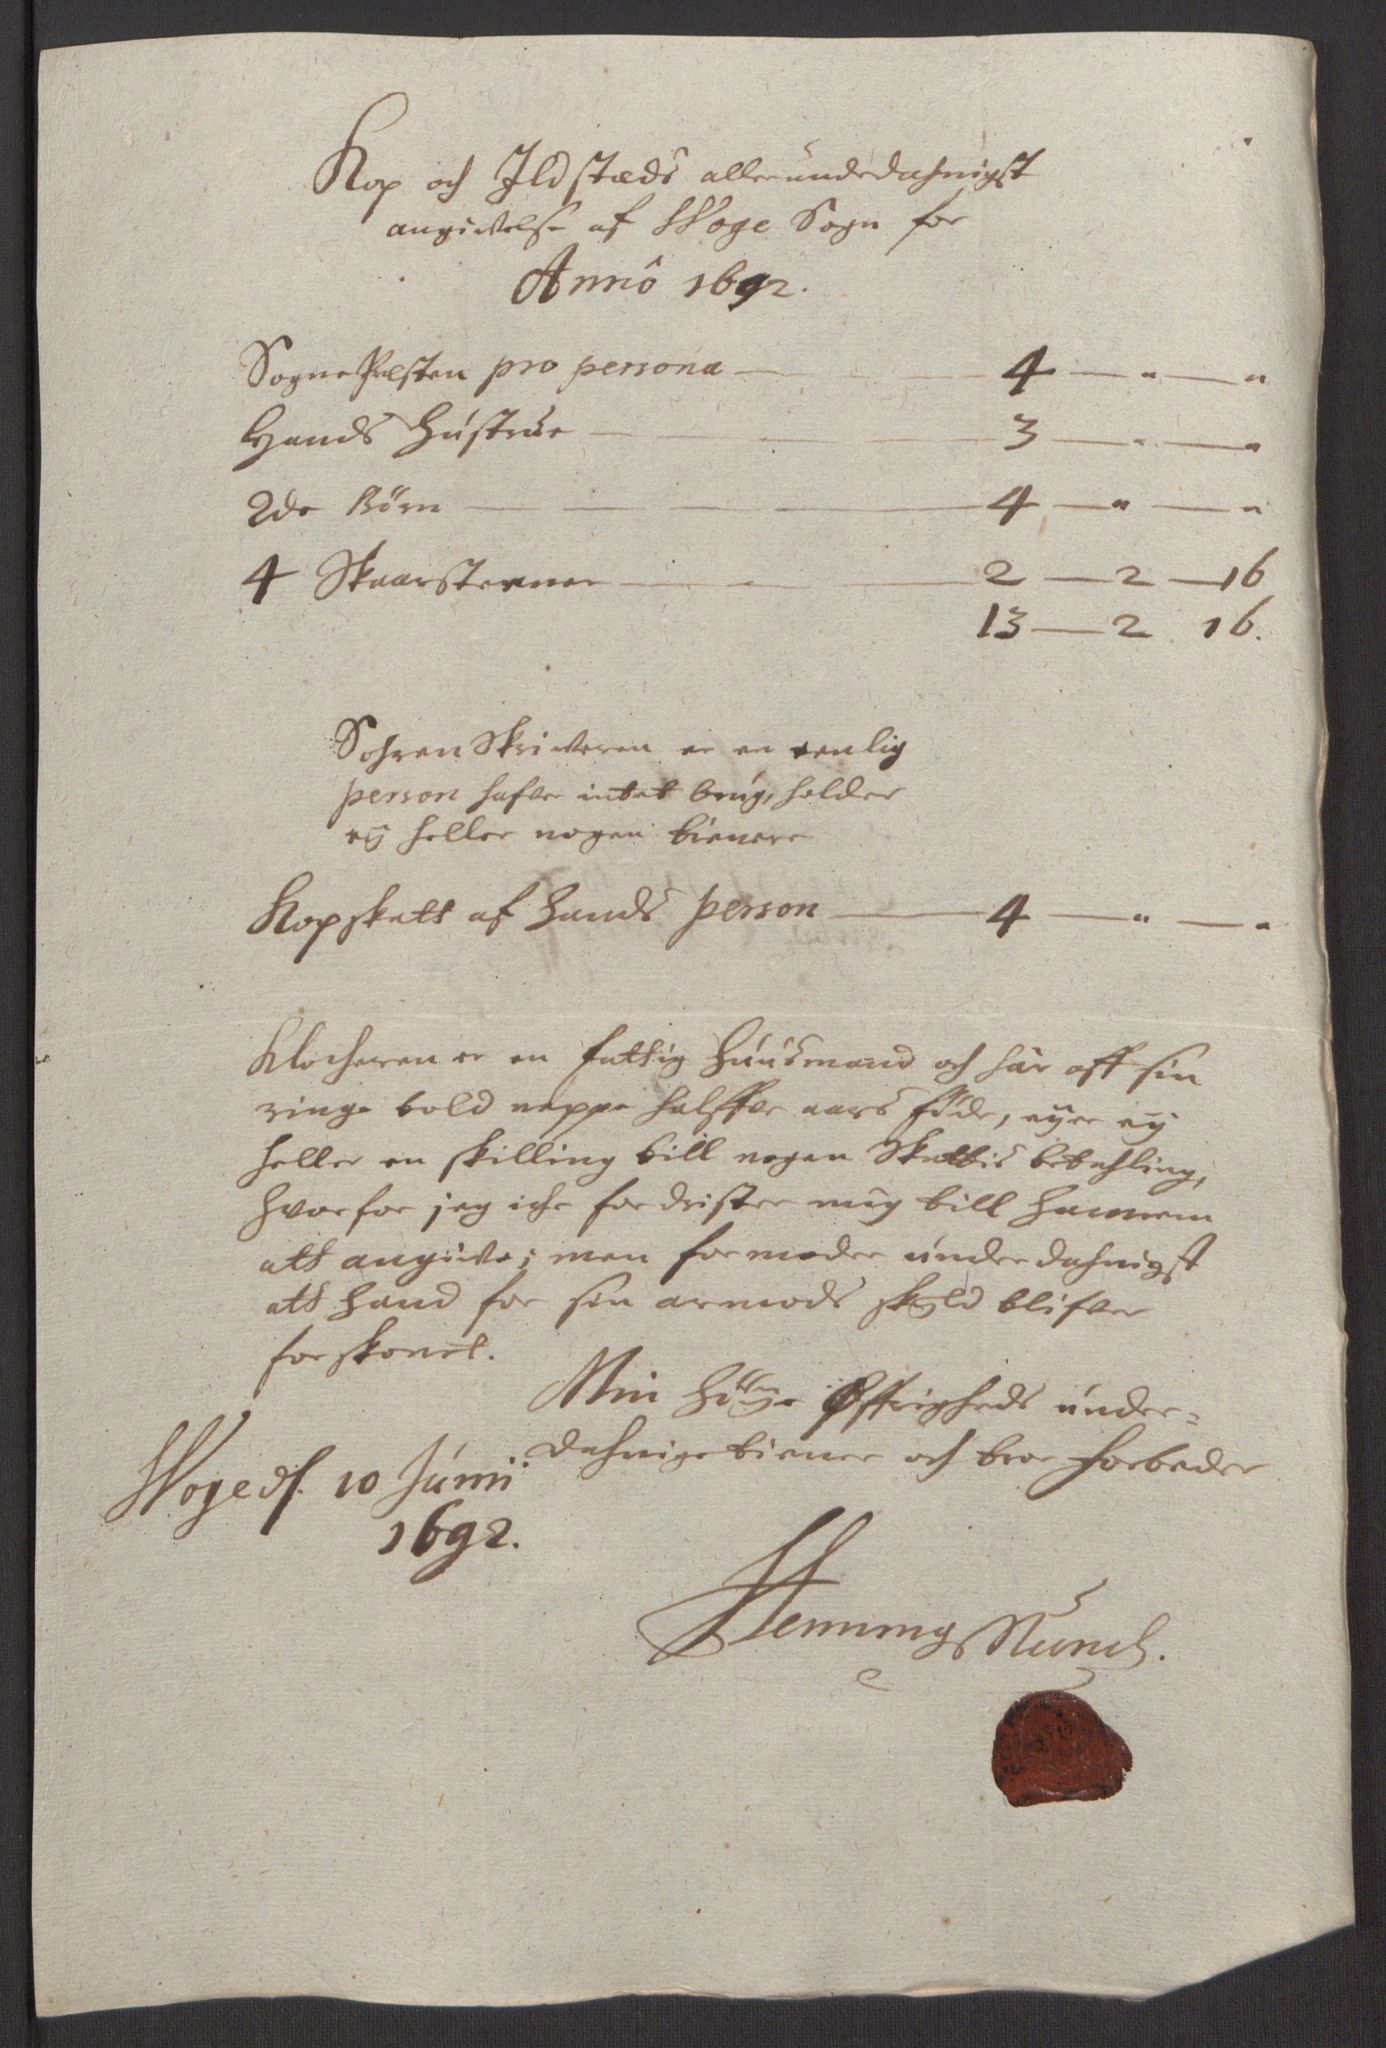 Kop och Jldstæds allerundedahnigst
angivelse af Woge Sogn for
Annô 1692.
SognePræsten pro persona — 4 — " — "
Hands Hústrúe — 3 — " — "
2de Börn — 4 — " — "
4 Skaarstenner — 2 — 2 — 16
13 — 2 16.
Sohrenskriveren er en eenlig
person hafver intet brúg, holder
eÿ heller nogen tienere
Kopskatt af hands person — 4 — " — "
Klocheren er en fattig Húúsmand och här aff sin
ringe bold neppe halffve aars föde, eÿer eÿ
heller en skilling till nogen Skattis betahling,
hvorfor jeg iche fordrister mig till hannem
att angive; men formoder únderdahnigst
att hand for sin armods skÿld blifver
forskonet.
Min Höÿe Øffrigheds únder-
dahnige tiener och troe forbeder
Woge d. 10 Júnii
1692.
Henning Múnch.